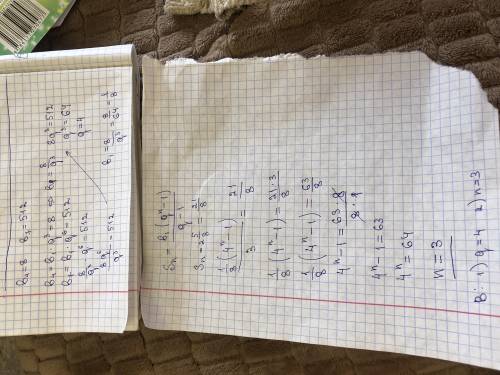 b₄=8 b₇=512
b₄=b₁·q³=8 ⇒ b₁=8/q³ 8q³=512
b₇=b₁·q⁶=512 q³=64
8/q³·q⁶=512 q=4
8q⁶/q³=512 b₁=8/q³=8/64=1/8
Sₙ=b₁(qⁿ-1)/q-1
Sₙ=2 5/8=21/8
1/8(4ⁿ-1)/3=21/8
1/8(4ⁿ-1)=21·3/8
1/8(4ⁿ-1)=63/8
4ⁿ-1=63·8/8·1
4ⁿ-1=63
4ⁿ=64
n=3
В: 1) q=4 2) n=3